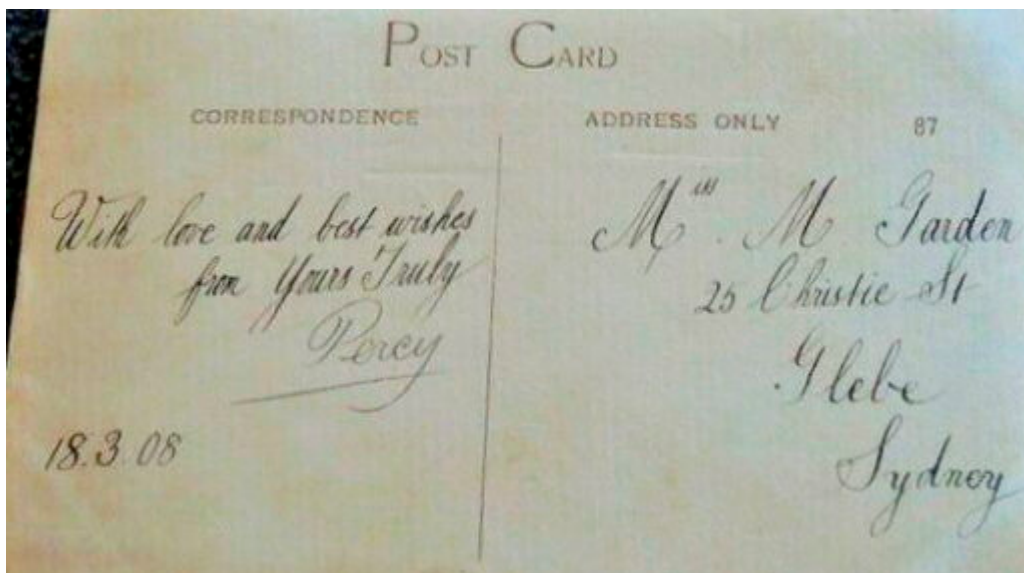 POST CARD
CORRESPONDENCE
ADDRESS ONLY 87
With love and best wishes
from Yours Truly
Percy
18.3.08
Miss. M Garden
25 Christie St
Glebe
Sydney